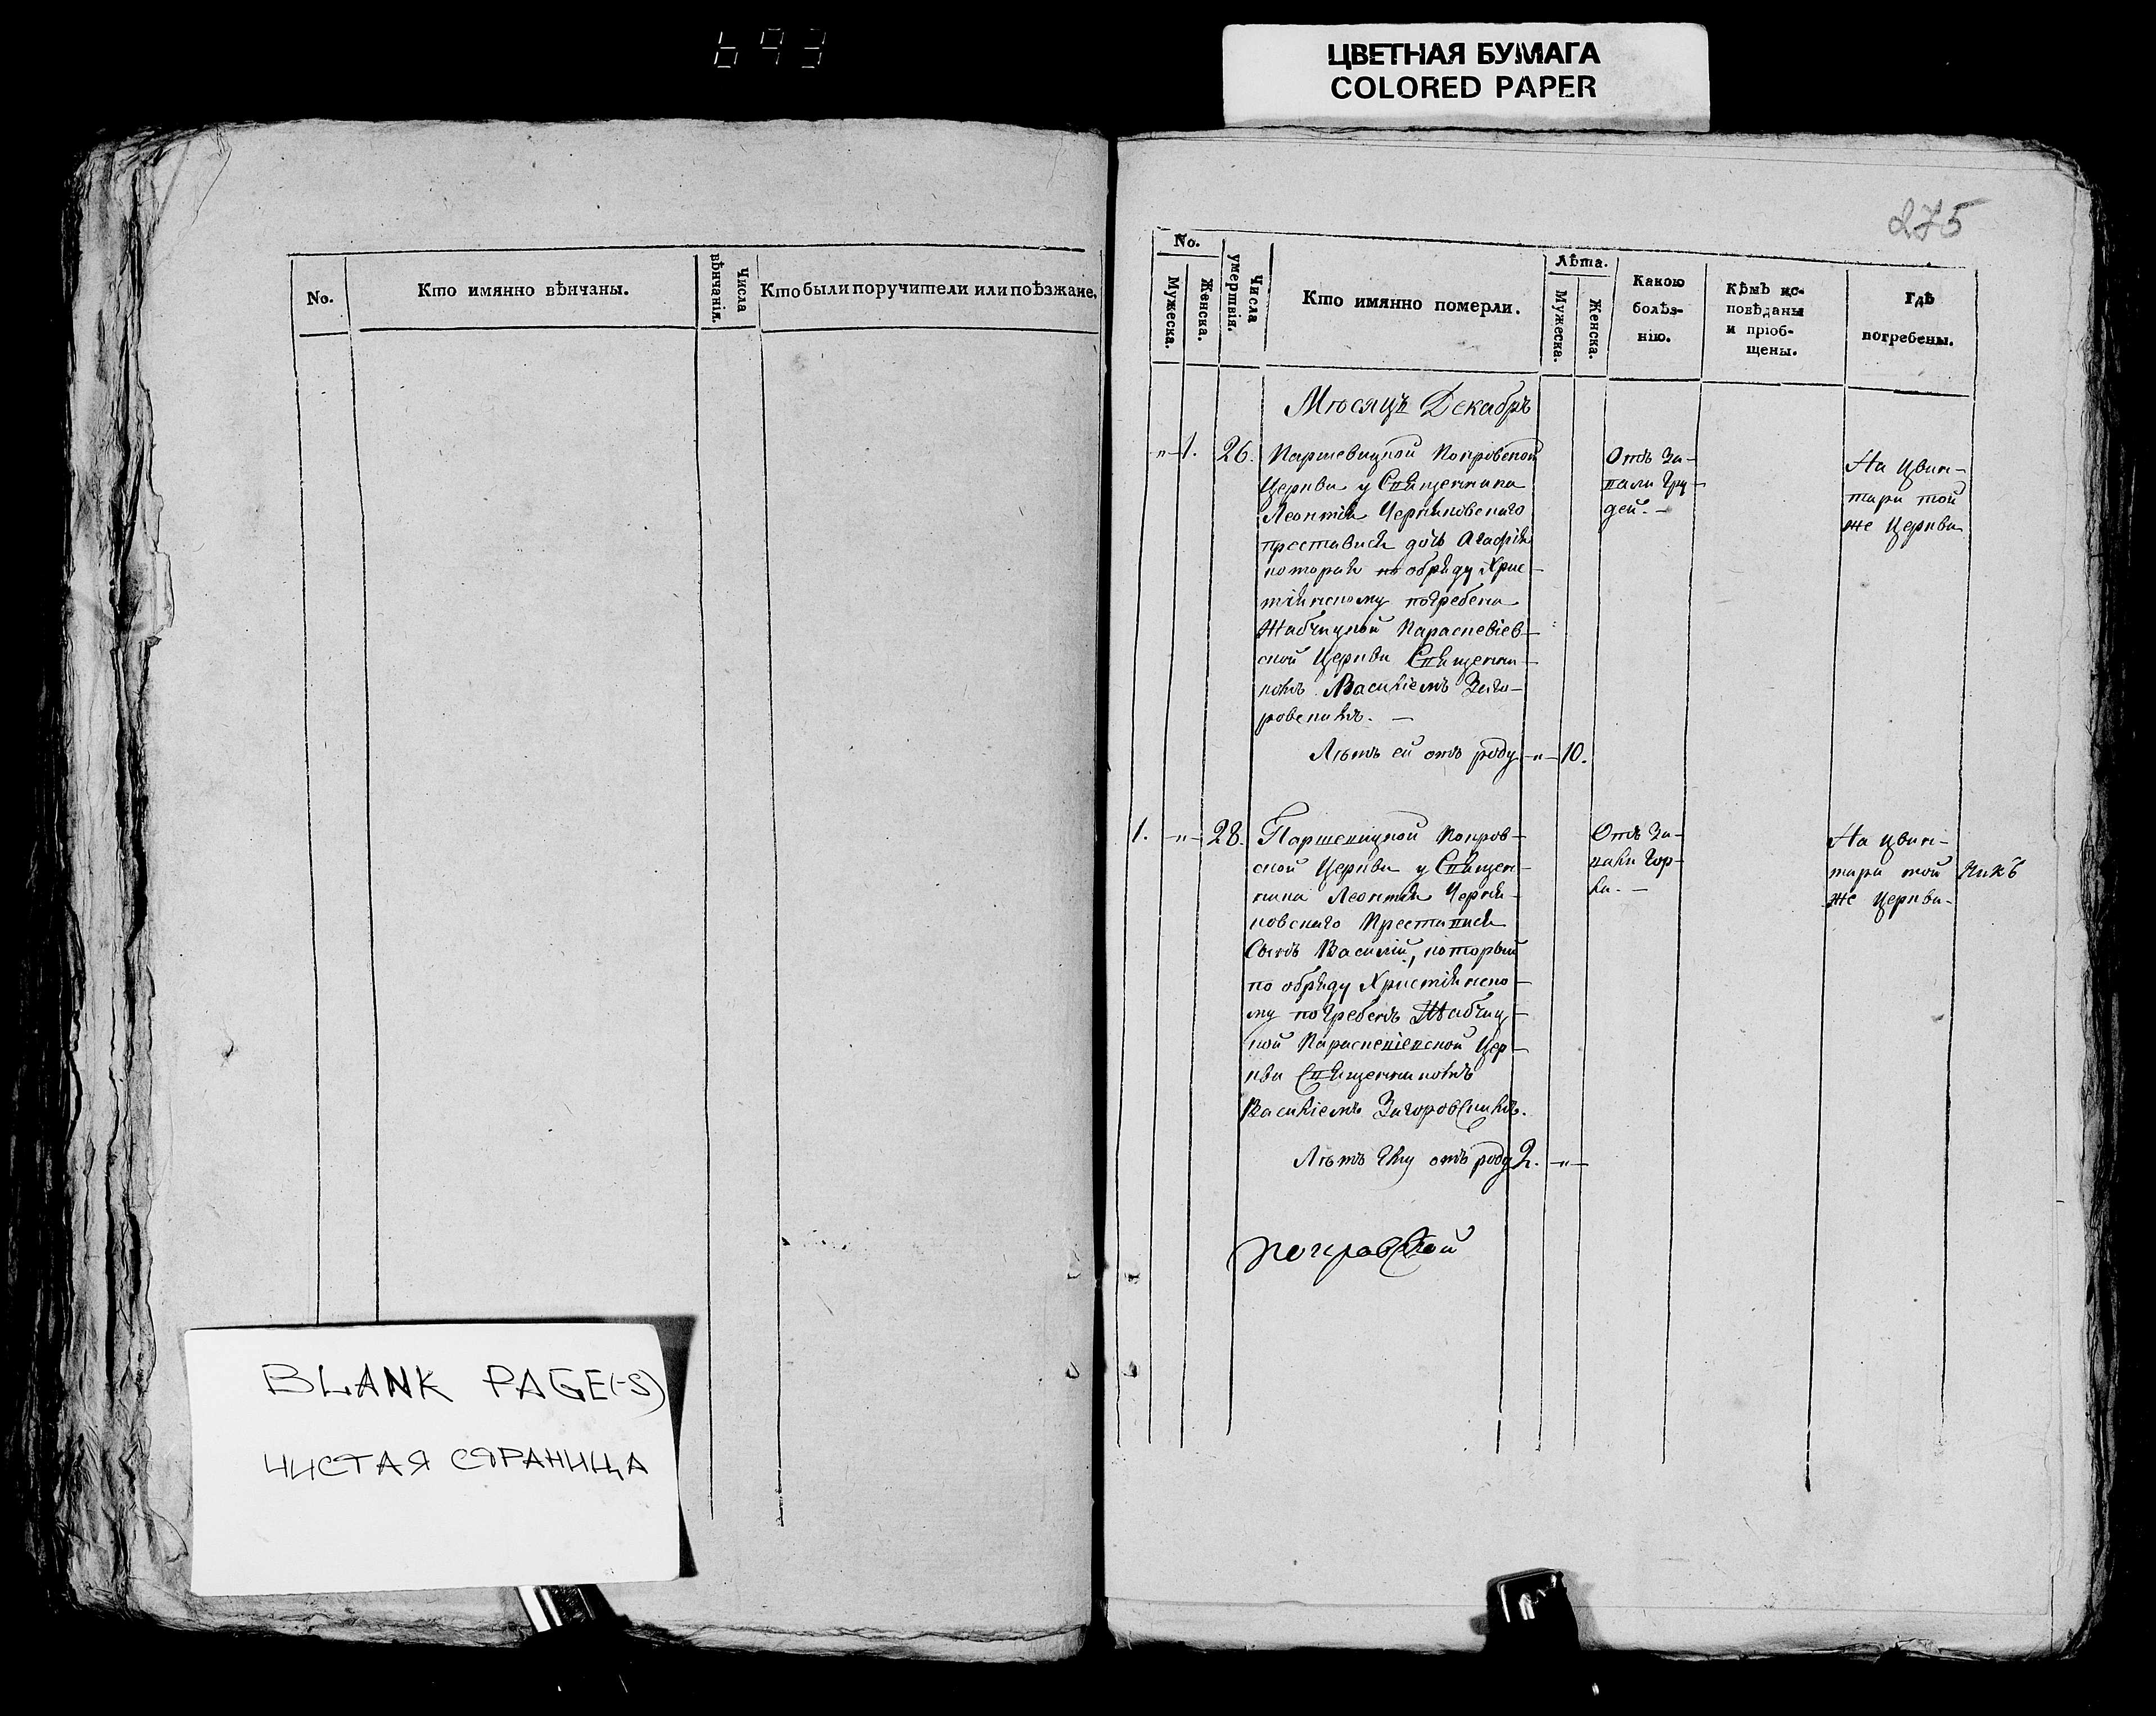 693
ЦВЕТНАЯ БУМАГА
COLORED PAPER
No.
Кто имянно вѣнчаны.
Числа вѣнчанія.
Кто были поручители или поѣзжане.
BLANK PAGE(-S)
ЧИСТАЯ СТРАНИЦА
275
No.
Мужеска.
Женска.
Числа умертвія.
Кто имянно померли.
Лѣта.
Мужеска.
Женска.
Какою
болѣз-
нію.
Кѣмъ ис-
повѣданы
и пріоб-
щены.
Гдѣ
погребены.
Мѣсяцъ Декабрь
-"- 1. 26. Паршевицкой Покровской
Церкви у Священника
Леонтія Черняковского
преставися дочь Агафія
которая по обряду Хрис-
тіянскому погребена
Жабчицкой Параскевіев-
ской Церкви Священни-
комъ Василіемъ Заго-
ровскимъ. —
Лѣтъ ей отъ роду -"- 10.
Отъ За-
пали Гру-
дей. -
На Цвин-
тари той
же Церкви
1. -"- 28. Паршевицкой Покров-
ской Церкви у Священ-
ника Леонтія Черня-
ковского Преставися
Сынъ Василій, который
по обряду Христіянско-
му погребенъ Жабчиц-
кой Параскевіевской Цер-
кви Священникомъ
Василіемъ Загоровскимъ.
Лѣтъ ему отъ роду 2. -"-
Отъ За-
пали Гор-
ла. -
На Цвин-
тари той
же Церкви-
Покровской